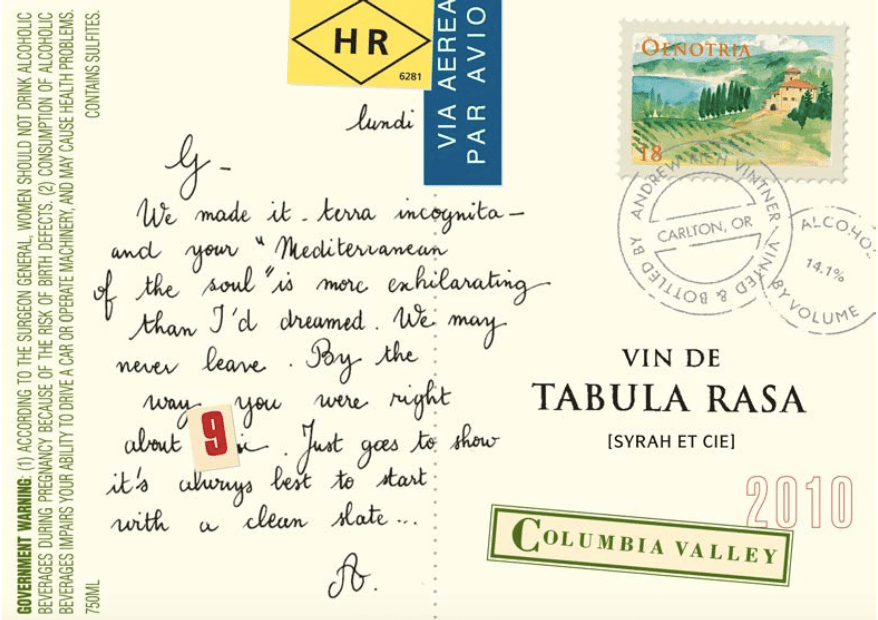 GOVERNMENT WARNING: (1) ACCORDING TO THE SURGEON GENERAL, WOMEN SHOULD NOT DRINK ALCOHOLIC
BEVERAGES DURING PREGNANCY BECAUSE OF THE RISK OF BIRTH DEFECTS. (2) CONSUMPTION OF ALCOHOLIC
BEVERAGES IMPAIRS YOUR ABILITY TO DRIVE A CAR OR OPERATE MACHINERY, AND MAY CAUSE HEALTH PROBLEMS.
750ML CONTAINS SULFITES.
HR
6281
VIA AEREA
PAR AVIO
lundi
G-
We made it - terra incognita -
and your "Mediterranean
of the soul" is more exhilarating
than I'd dreamed. We may
never leave. By the
way you were right
about 9. Just goes to show
it's always best to start
with a clean slate...
A.
OENOTRIA
18
ANDREW RICH VINTNER - VINTED & BOTTLED BY
CARLTON, OR
ALCOHO
14.1%
BY VOLUME
VIN DE
TABULA RASA
[SYRAH ET CIE]
2010
COLUMBIA VALLEY